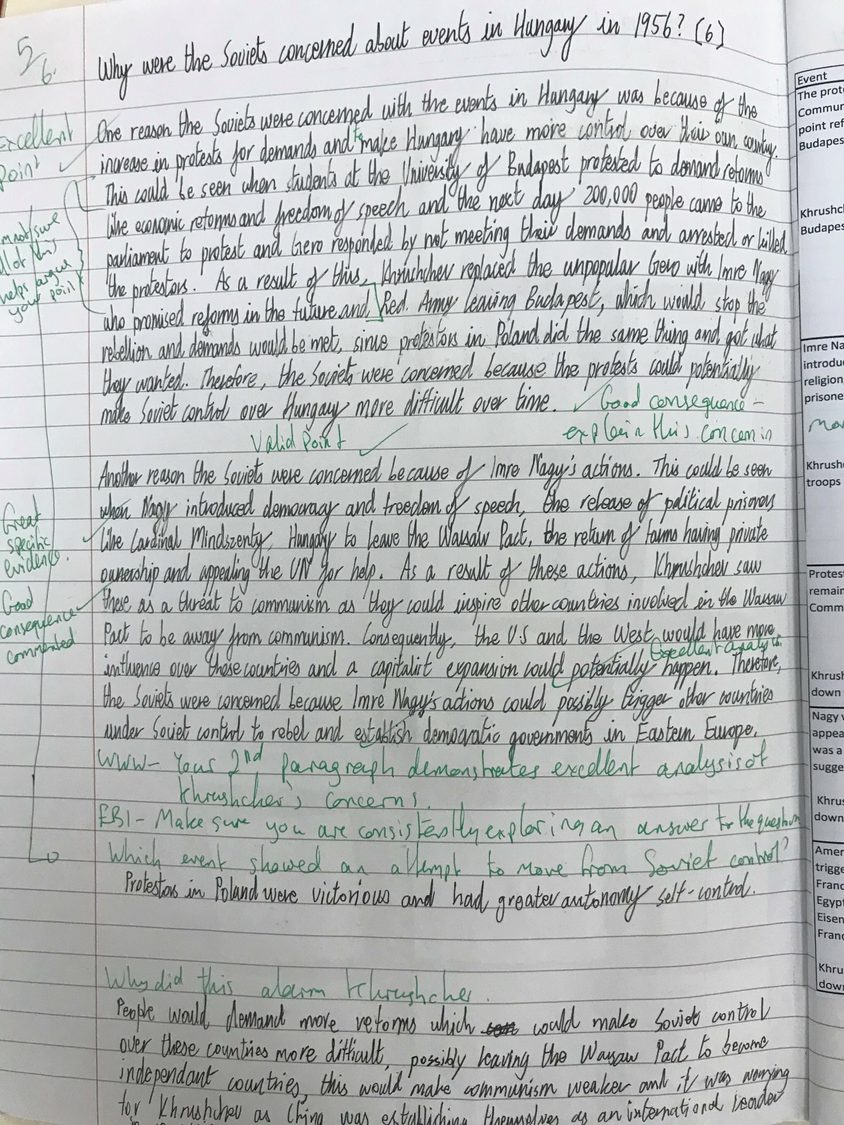 5/6.
Why were the Soviets concerned about events in Hungary in 1956? (6)
Excellent
Point
One reason the Soviets were concerned with the events in Hungary was because of the
increase in protests for demands and to make Hungary have more control over their own country.
This could be seen when students at the University of Budapest protested to demand reforms
like economic reforms and freedom of speech and the next day 200,000 people came to the
parliament to protest and Gero responded by not meeting their demands and arrested or killed
the protestors. As a result of this, Khrushchev replaced the unpopular Gero with Imre Nagy
who promised reforms in the future and Red Army leaving Budapest, which would stop the
rebellion and demands would be met, since protestors in Poland did the same thing and got what
they wanted. Therefore, the Soviets were concerned because the protests could potentially
make Soviet control over Hungary more difficult over time.
not sure
all of this
helps argue
your point
Good consequence -
explain this concern
Valid Point
Another reason the Soviets were concerned because of Imre Nagy's actions. This could be seen
when Nagy introduced democracy and freedom of speech, the release of political prisoners
like Cardinal Mindszenty, Hungary to leave the Warsaw Pact, the return of farms having private
ownership and appealing the UN for help. As a result of these actions, Khrushchev saw
these as a threat to communism as they could inspire other countries involved in the Warsaw
Pact to be away from communism. Consequently, the US and the West would have more
influence over those countries and a capitalist expansion could potentially happen. Therefore,
the Soviets were concerned because Imre Nagy's actions could possibly trigger other countries
under Soviet control to rebel and establish democratic governments in Eastern Europe.
Great
specific
evidence.
Good
consequence
commented
Excellent analysis
WWW- Your 2nd paragraph demonstrates excellent analysis of
Khrushchev's concerns.
EBI- Make sure you are consistently exploring an answer to the question
Which event showed an attempt to move from Soviet control?
Protestors in Poland were victorious and had greater autonomy self-control.
Why did this alarm Khrushchev.
People would demand more reforms which would make Soviet control
over these countries more difficult, possibly leaving the Warsaw Pact to become
independant countries, this would make communism weaker and it was worrying
for Khrushchev as China was establishing themselves as an international leader
Event
The prote
Commun
point ref
Budapes
Khrushch
Budapes
Imre Na
introduc
religion,
prisone
Khrush
troops
Protest
remain
Comm
Khrush
down
Nagy v
appea
was a
sugge
Khrus
down
Amer
trigge
Franc
Egypt
Eisen
Franc
Khru
down